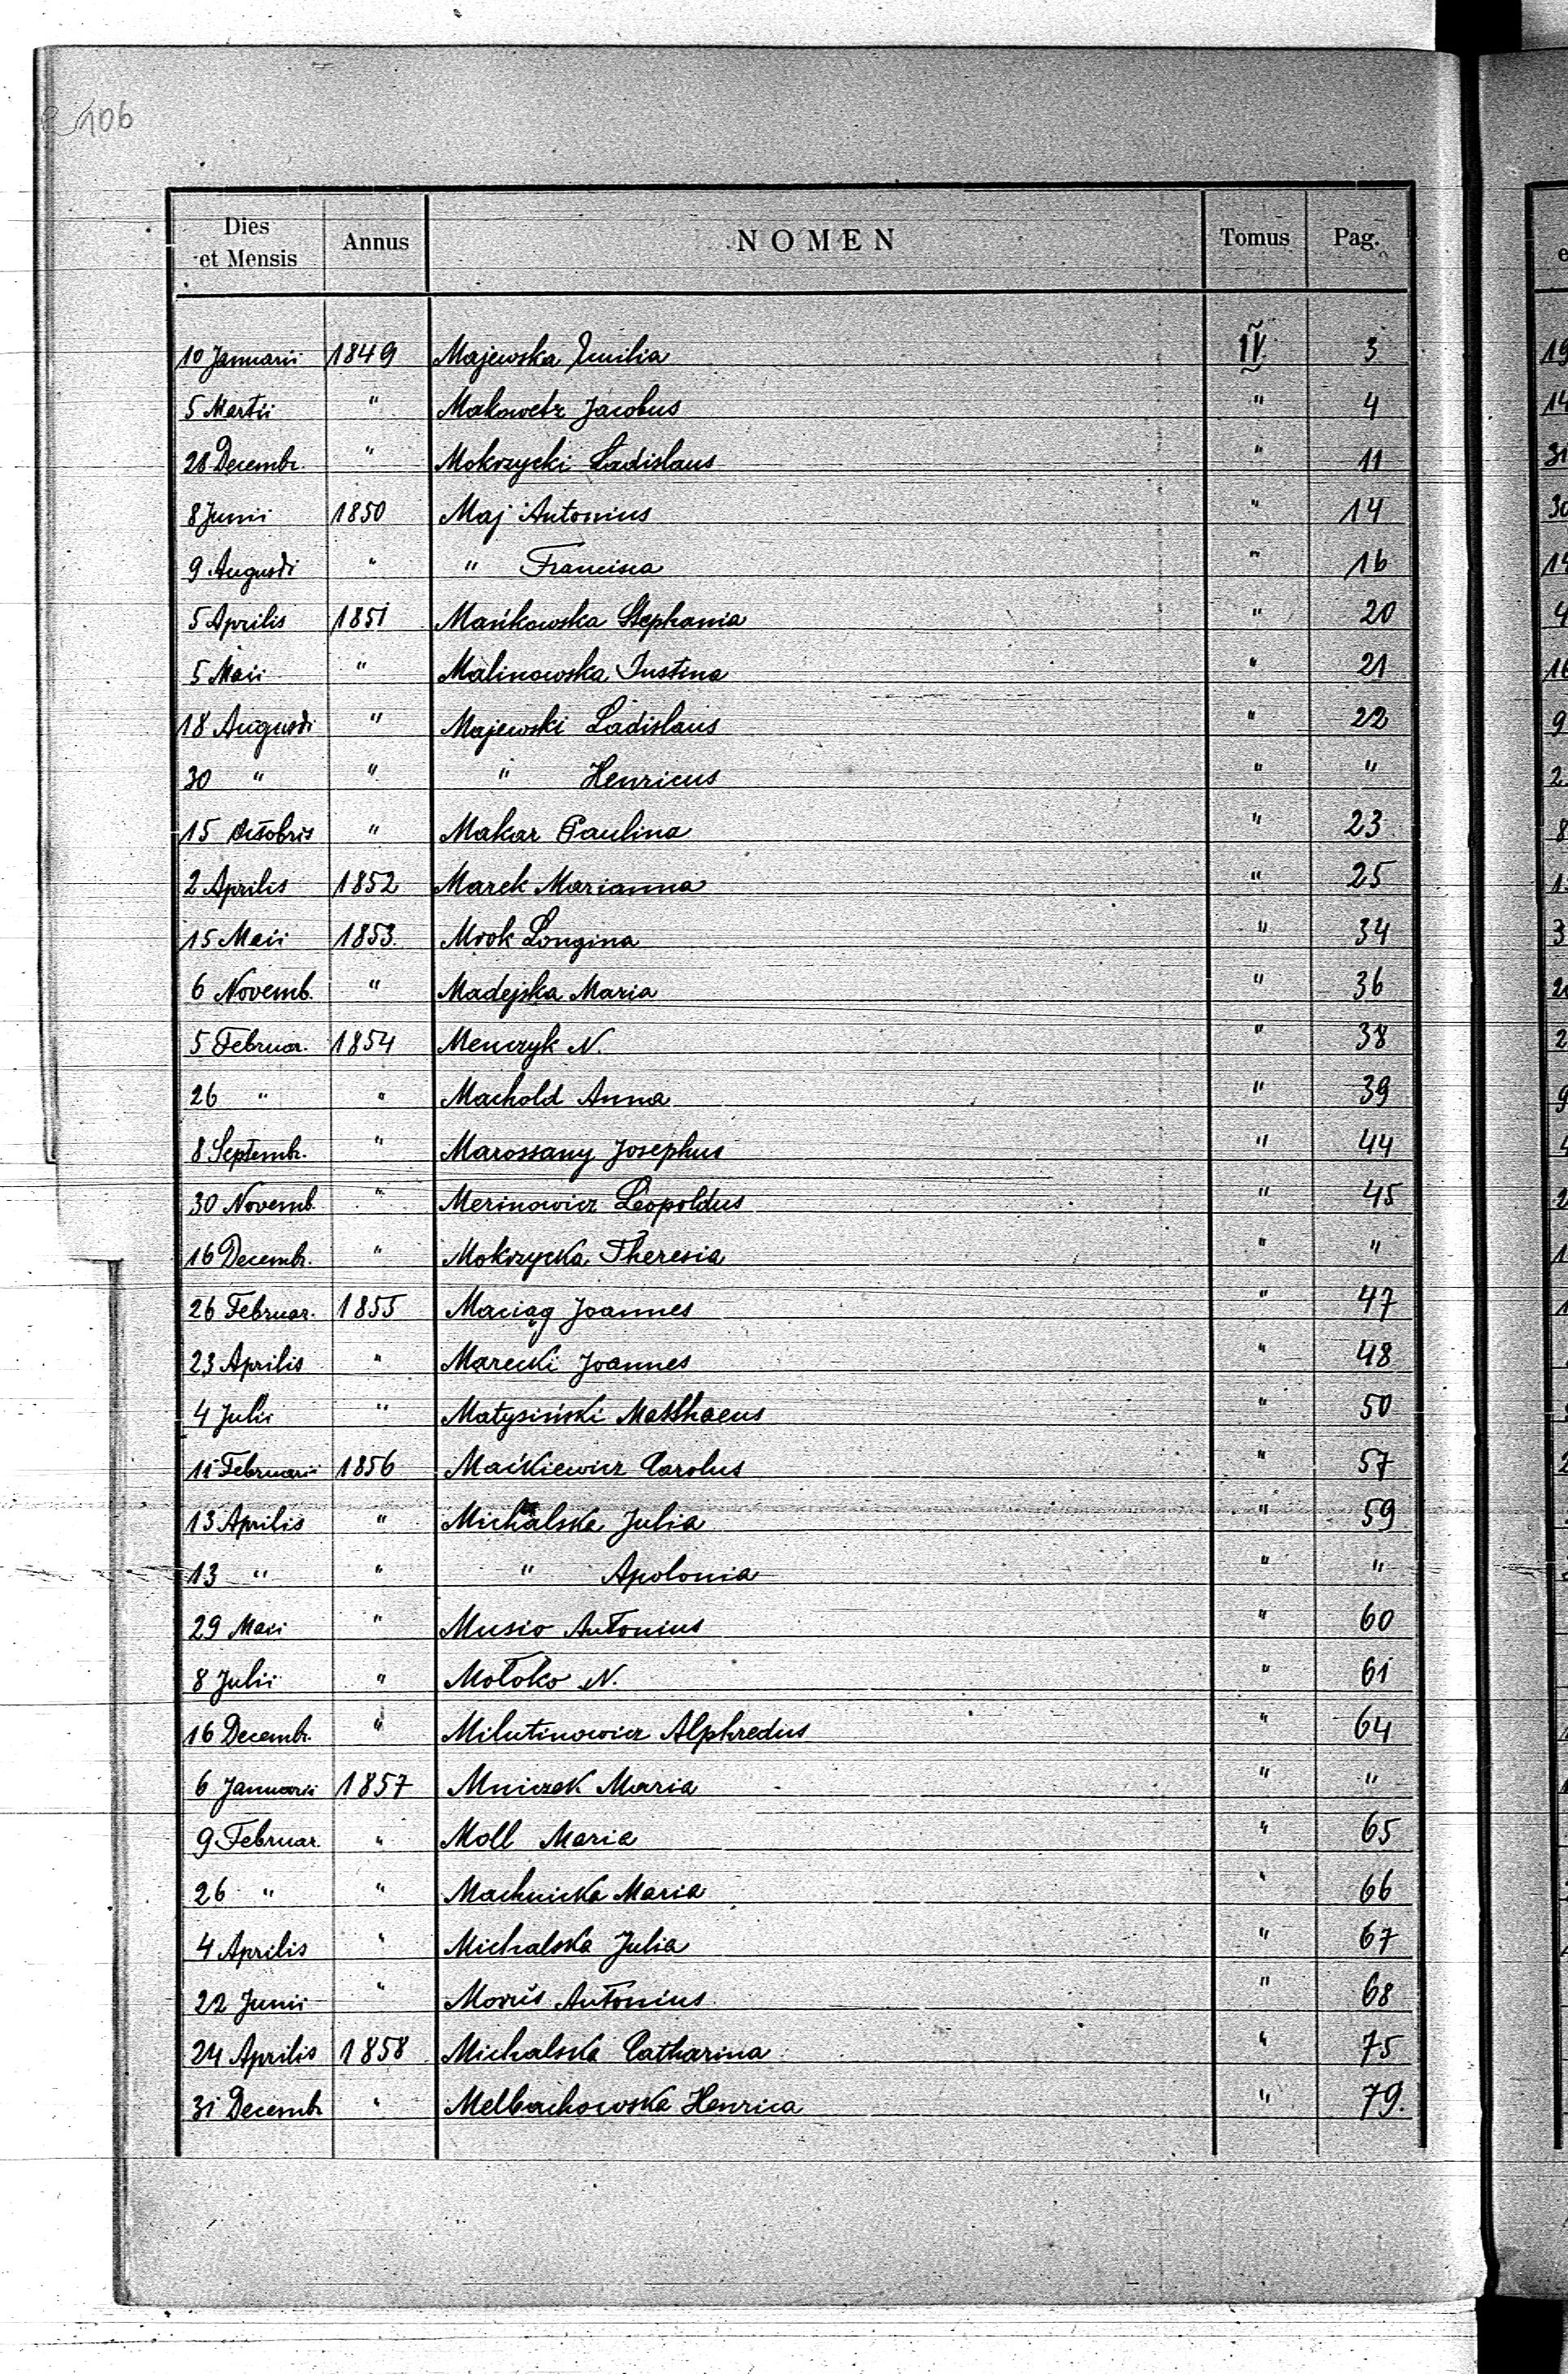 106
Dies et Mensis Annus NOMEN Tomus Pag.
10 Januarii 1849 Majewska Emilia IV. 3
5 Martii " Makowetz Jacobus " 4
28 Decembr. " Mokrzycki Ladislaus " 11
8 Junii 1850 Maj Antonius " 14
9 Augusti " " Francisca " 16
5 Aprilis 1851 Mańkowska Stephania " 20
5 Maii " Malinowska Justina " 21
18 Augusti " Majewski Ladislaus " 22
30 " " " Henricus " "
15 Octobris " Makar Paulina " 23
2 Aprilis 1852 Marek Marianna " 25
15 Maii 1853 Mrok Longina " 34
6 Novemb. " Madejska Maria " 36
5 Februar. 1854 Menczyk N. " 38
26 " " Machold Anna " 39
8 Septembr. " Marossany Josephus " 44
30 Novemb. " Merinowicz Leopoldus " 45
16 Decembr. " Mokrzycka Theresia " "
26 Februar. 1855 Maciąg Joannes " 47
23 Aprilis " Marecki Joannes " 48
4 Julii " Matysiński Matthaeus " 50
11 Februarii 1856 Maćkiewicz Carolus " 57
13 Aprilis " Michalska Julia " 59
13 " " " Apolonia " "
29 Maii " Musio Antonius " 60
8 Julii " Mołoko N. " 61
16 Decembr. " Milutinowicz Alphredus " 64
6 Januarii 1857 Mniczek Maria " "
9 Februar. " Moll Maria " 65
26 " " Machnicka Maria " 66
4 Aprilis " Michalska Julia " 67
22 Junii " Antonius " 68
24 Aprilis 1858 Michalska Catharina " 75
31 Decembr " Melbachowska Henrica " 79.